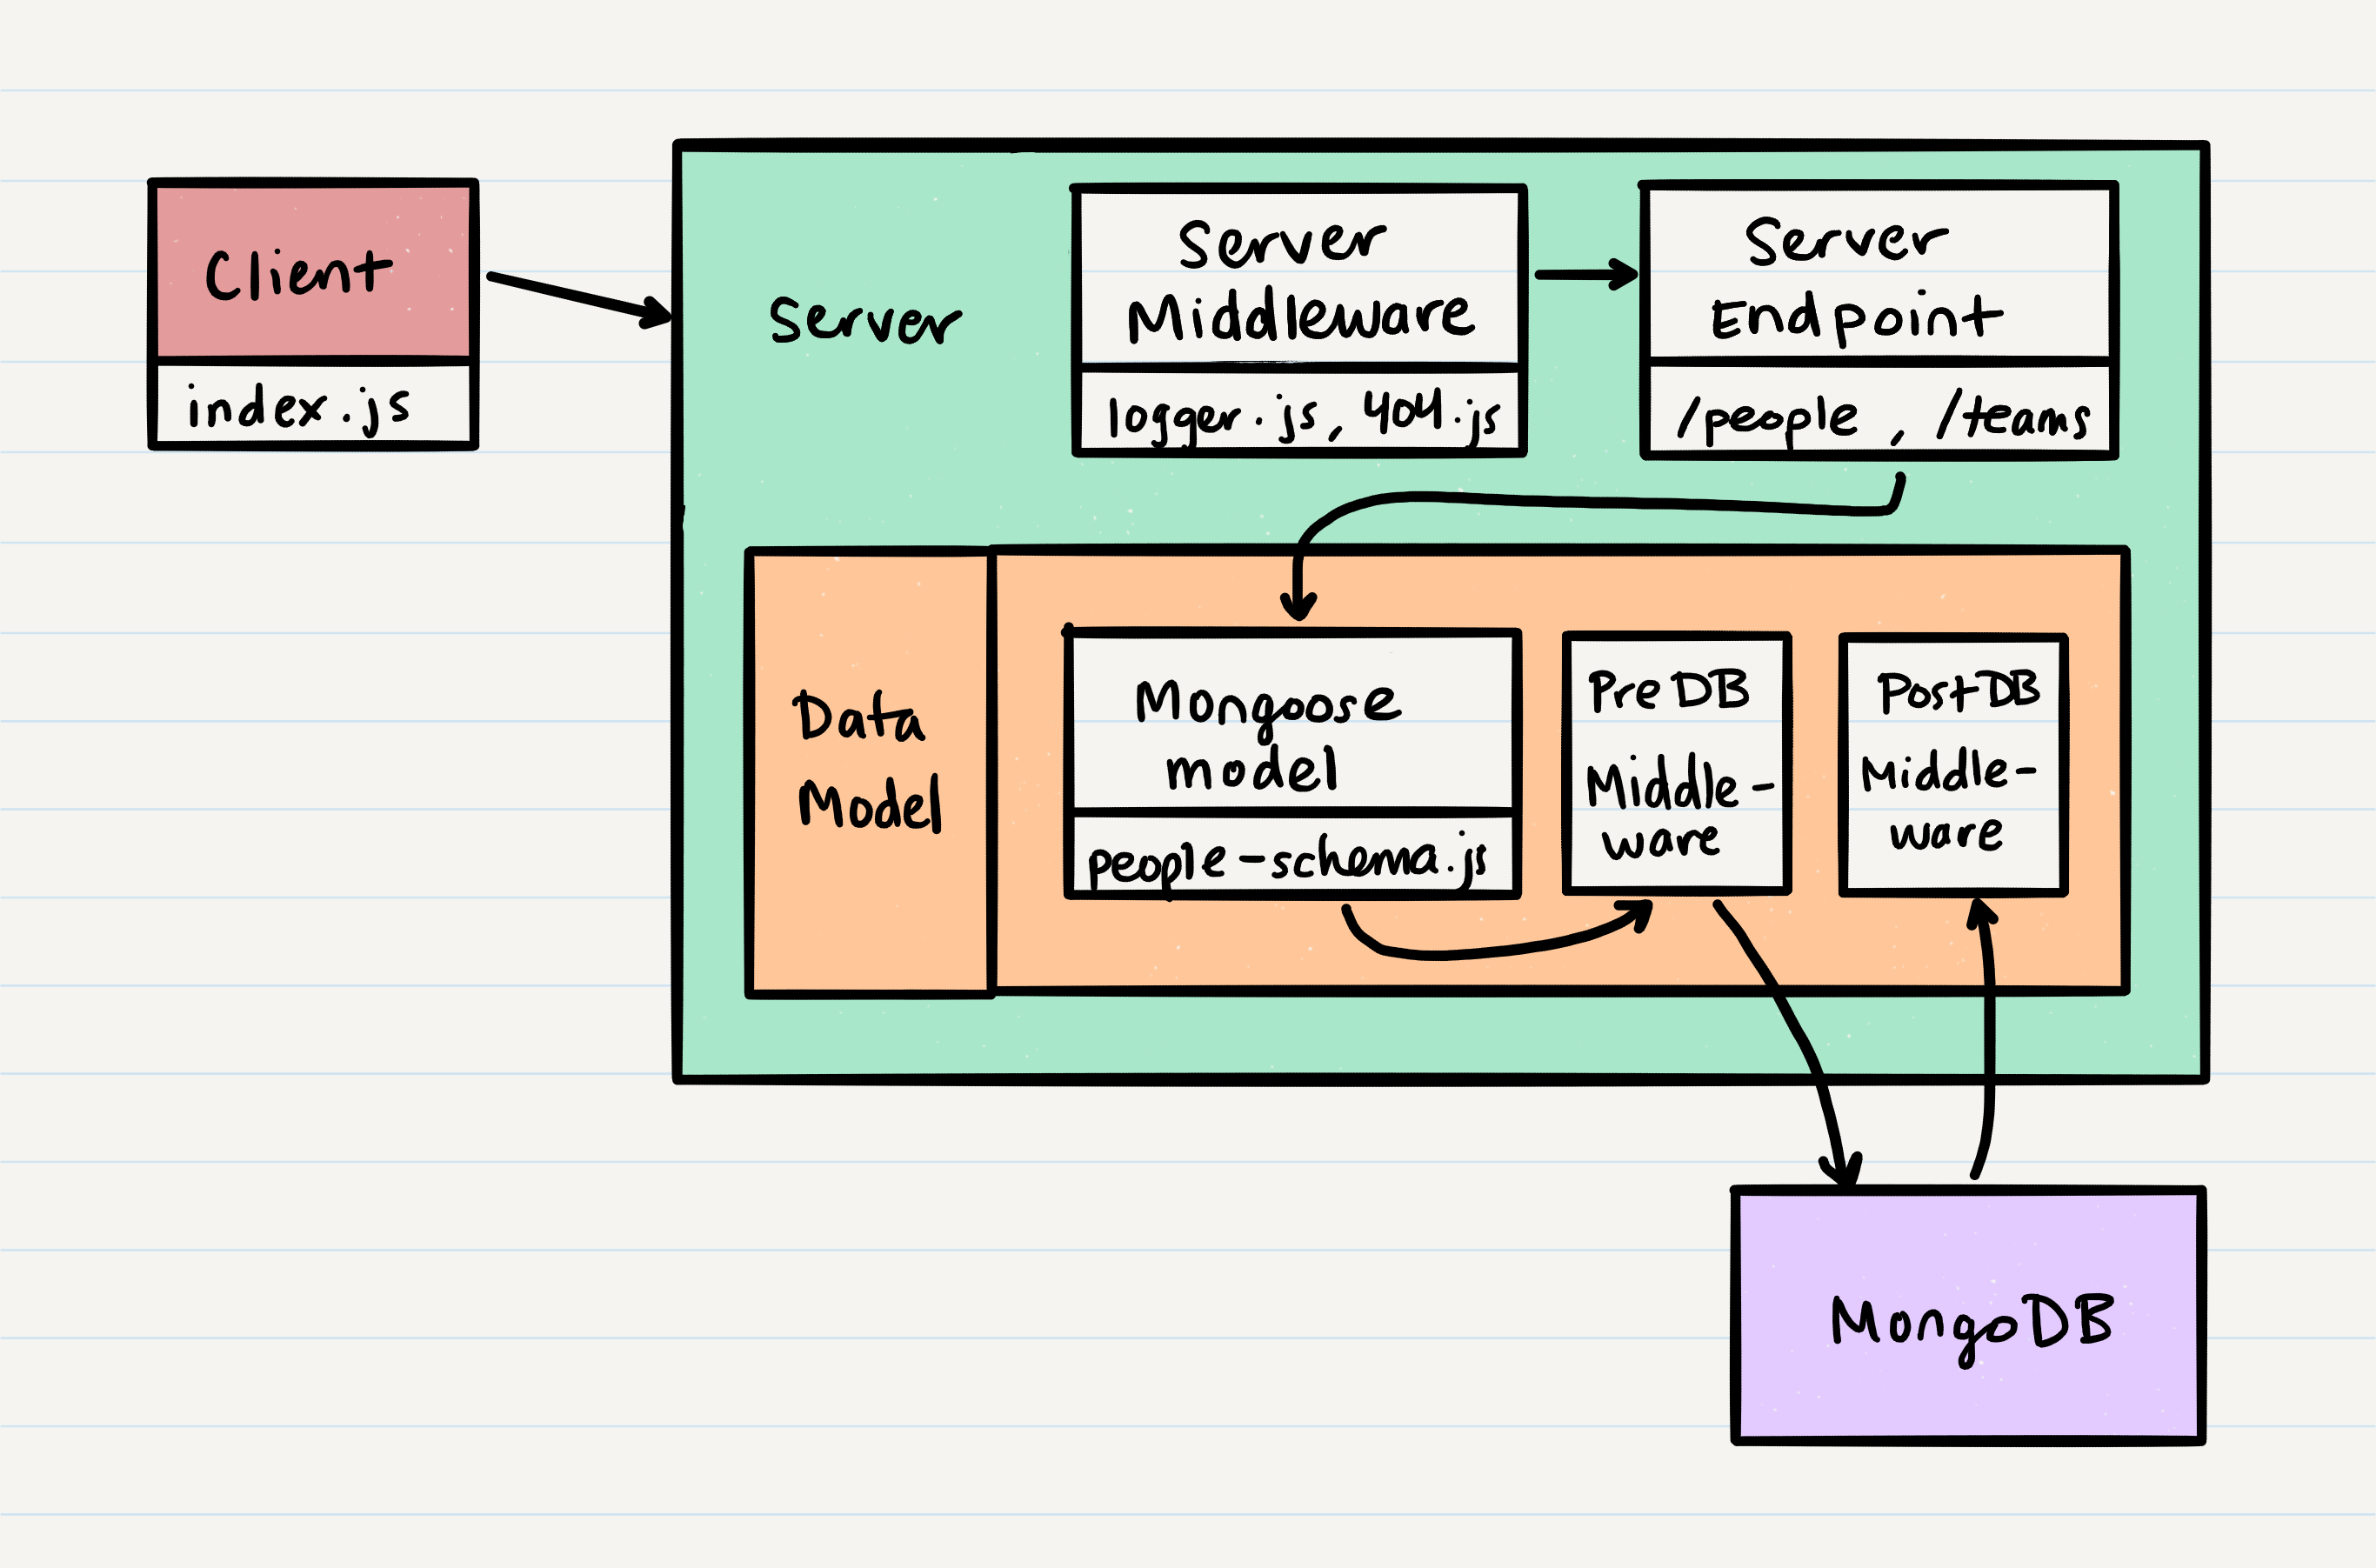 Client
index.js
Server
Server
Middleware
logger.js, 404.js
Server
Endpoint
/people, /teams
Data
Model
Mongoose
model
people-schema.js
Pre DB
Middle-
ware
Post DB
Middle-
ware
MongoDB